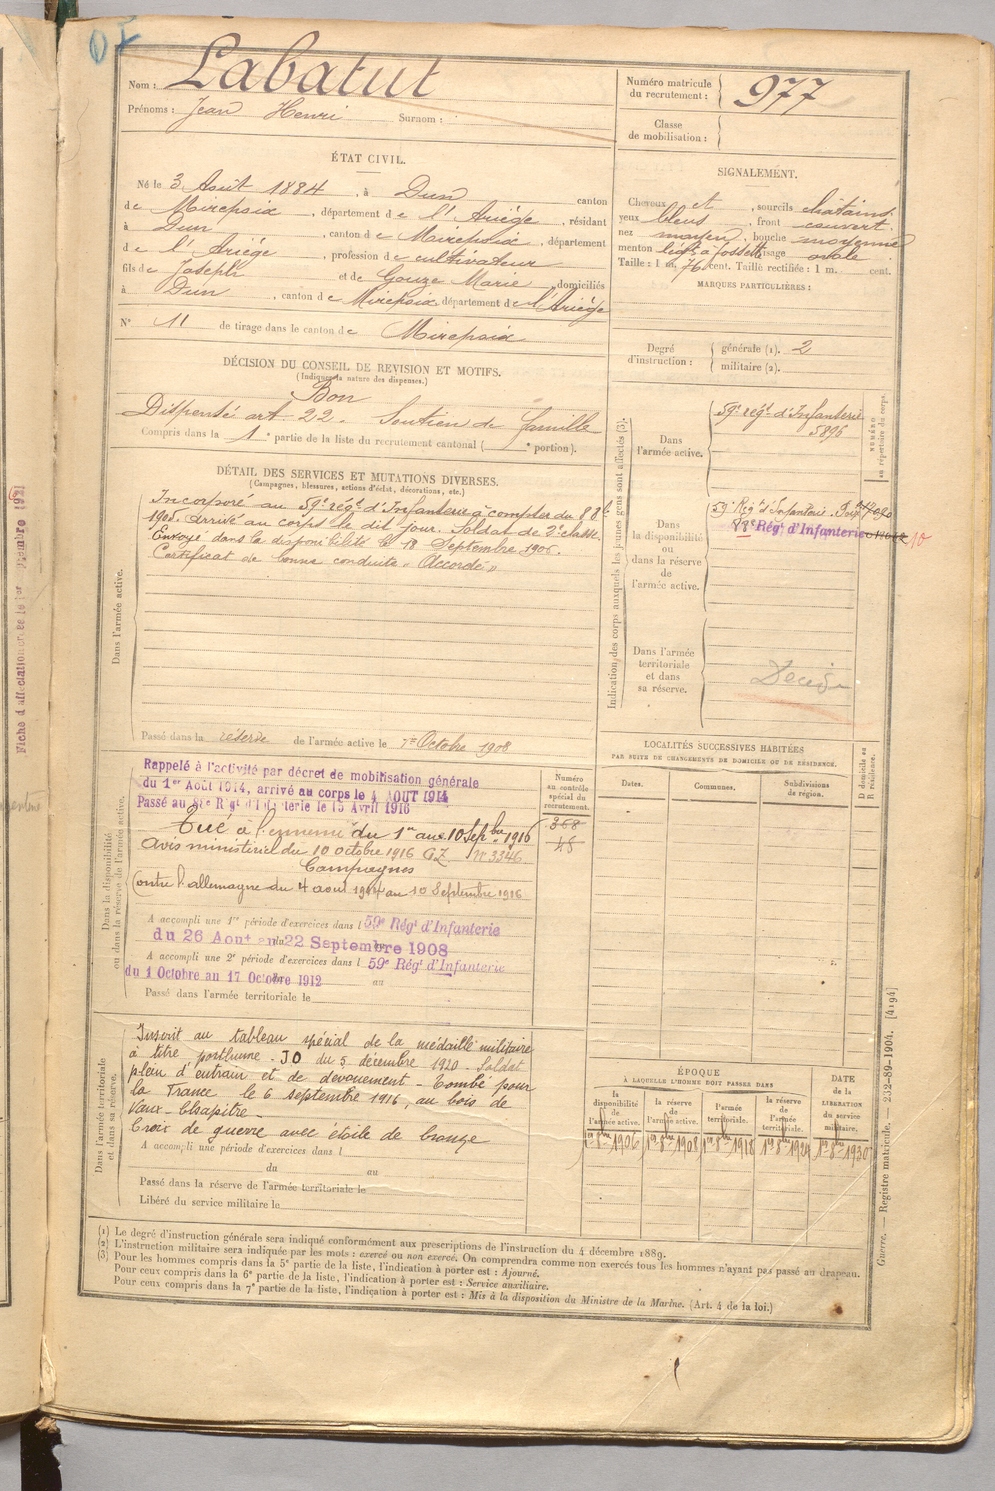 Nom : Labatut
Prénoms : Jean Henri Surnom :
Numéro matricule du recrutement : 977
Classe de mobilisation :
ÉTAT CIVIL.
Né le 3 Août 1884, à Dun canton
de Mirepoix, département de l'Ariège, résidant
à Dun, canton de Mirepoix, département
de l'Ariège, profession de cultivateur
fils de Joseph et de Gouze Marie, domiciliés
à Dun, canton de Mirepoix, département de l'Ariège
N° 11 de tirage dans le canton de Mirepoix
SIGNALEMENT.
Cheveux et, sourcils chatains
yeux bleus, front couvert
nez moyen, bouche moyenne
menton à fossette visage ovale
Taille : 1 m. 76 cent. Taille rectifiée : 1 m. cent.
MARQUES PARTICULIÈRES :
Degré d'instruction : générale (1). 2
militaire (2).
DÉCISION DU CONSEIL DE REVISION ET MOTIFS.
(Indiquer la nature des dispenses.)
Bon
Dispensé art. 22. Soutien de famille
Compris dans la 1e partie de la liste du recrutement cantonal ( e portion).
DÉTAIL DES SERVICES ET MUTATIONS DIVERSES.
(Campagnes, blessures, actions d'éclat, décorations, etc.)
Dans l'armée active.
Incorporé au 59e régt d'Infanterie à compter du 8 8bre
1905. arrivé au corps le dit jour. Soldat de 2e classe.
Envoyé dans la disponibilité le 18 Septembre 1906.
Certificat de bonne conduite « Accordé »
Passé dans la réserve de l'armée active le 1er Octobre 1908
Indication des corps auxquels les jeunes gens sont affectés (3).
NUMÉRO au répertoire du corps.
Dans l'armée active.
59e régt d'Infanterie
5896
Dans la disponibilité ou dans la réserve de l'armée active.
59e Régt d'Infanterie
Régt d'Infanterie
Dans l'armée territoriale et dans sa réserve.
Décédé
Dans la disponibilité ou dans la réserve de l'armée active.
Rappelé à l'activité par décret de mobilisation générale
du 1er Août 1914, arrivé au corps le 4 AOUT 1914
Passé au Régt d'Infanterie le 15 Avril 1916
Tué à l'ennemi du 1er au 10 Sepbre 1916
Avis ministériel du 10 octobre 1916 GZ N° 3346
Campagnes
Contre l'allemagne du 4 aout 1914 au 10 Septembre 1916
Numéro au contrôle spécial du recrutement.
368
48
A accompli une 1re période d'exercices dans l 59e Régt d'Infanterie
du 26 Aout au 22 Septembre 1908
A accompli une 2e période d'exercices dans l 59e Régt d'Infanterie
du 1 Octobre au 17 Octobre 1912 au
Passé dans l'armée territoriale le
LOCALITÉS SUCCESSIVES HABITÉES
PAR SUITE DE CHANGEMENTS DE DOMICILE OU DE RÉSIDENCE.
Dates. Communes. Subdivisions de région. D domicile ou R résidence.
Dans l'armée territoriale et dans sa réserve.
Inscrit au tableau spécial de la médaille militaire
à titre posthume - JO du 5 décembre 1920 - Soldat
plein d'entrain et de dévouement - Tombé pour
la France le 6 septembre 1916, au bois de
Vaux-Chapitre -
Croix de guerre avec étoile de bronze
A accompli une période d'exercices dans l
du au
Passé dans la réserve de l'armée territoriale le
Libéré du service militaire le
ÉPOQUE
À LAQUELLE L'HOMME DOIT PASSER DANS
la disponibilité de l'armée active. la réserve de l'armée active. l'armée territoriale. la réserve de l'armée territoriale. DATE de la LIBÉRATION du service militaire.
1er 8bre 1906 1er 8bre 1908 1er 8bre 1918 1er 8bre 1924 1er 8bre 1930
(1) Le degré d'instruction générale sera indiqué conformément aux prescriptions de l'instruction du 4 décembre 1889.
(2) L'instruction militaire sera indiquée par les mots : exercé ou non exercé. On comprendra comme non exercés tous les hommes n'ayant pas passé au drapeau.
(3) Pour les hommes compris dans la 5e partie de la liste, l'indication à porter est : Ajourné.
Pour ceux compris dans la 6e partie de la liste, l'indication à porter est : Service auxiliaire.
Pour ceux compris dans la 7e partie de la liste, l'indication à porter est : Mis à la disposition du Ministre de la Marine. (Art. 4 de la loi.)
Guerre. — Registre matricule. — 232-89-1904. [4194]